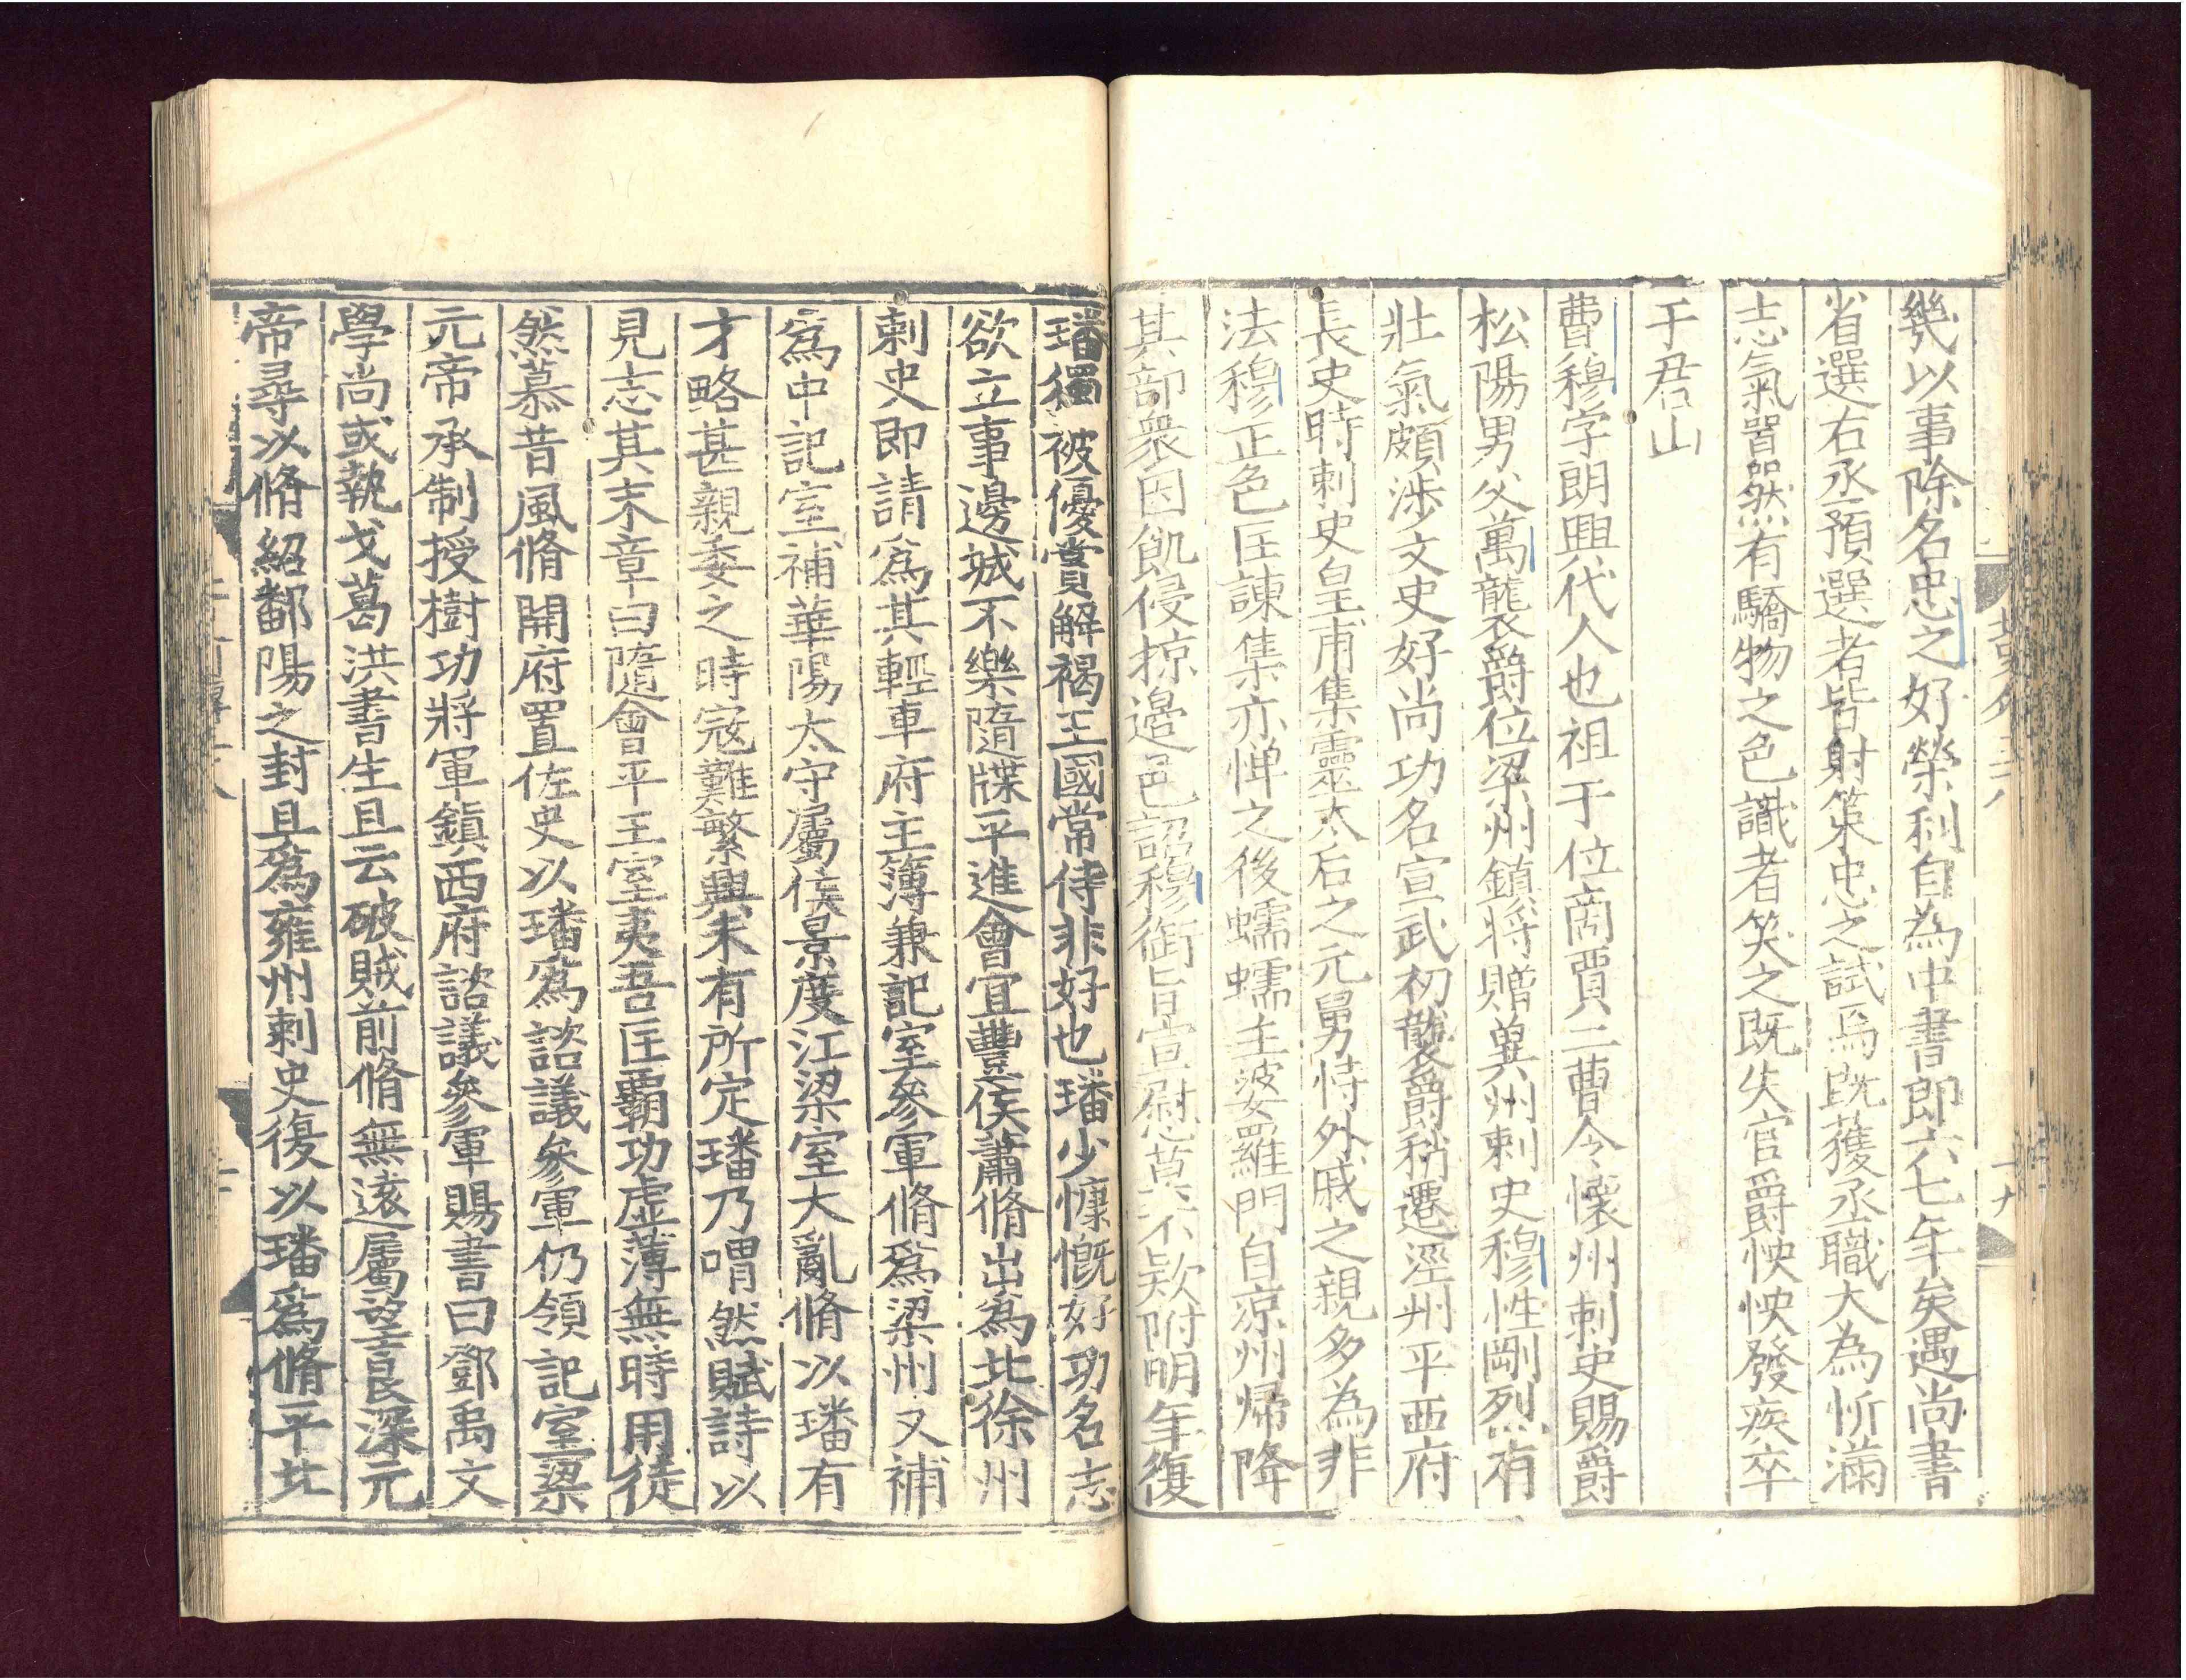 幾以事除名忠之好榮利自為中書郎六七年矣遇尚書
省選右丞預選者皆射策忠之試焉既獲丞職大為忻滿
志氣囂然有驕物之色識者笑之既失官爵怏怏發疾卒
于君山
費穆字朗興代人也祖于位商賈二曹令懷州刺史賜爵
松陽男父萬襲爵位梁州鎮將贈兾州刺史穆性剛烈有
壯氣頗涉文史好尚功名宣武初襲爵稍遷涇州平西府
長史時刺史皇甫集靈太后之元舅恃外戚之親多為非
法穆正色匡諫集亦憚之後蠕蠕主婆羅門自涼州歸降
其部衆因飢侵掠邉邑詔穆銜旨宣慰莫不欵附明年復
璠獨被優賞解褐王國常侍非好也璠少慷慨好功名志
欲立事邊城不樂隨牒平進會宜豐侯蕭脩出爲北徐州
剌史即請爲其輕車府主簿兼記室參軍脩爲梁州又補
爲中記室補華陽太守屬侯景度江梁室大亂脩以璠有
才略甚親委之時寇難繁興未有所定璠乃喟然賦詩以
見志其末章曰隨會平王室夷吾匡霸功虛薄無時用徒
然慕昔風脩開府置佐史以璠爲諮議參軍仍領記室梁
元帝承制授樹功將軍鎮西府諮議參軍賜書曰鄧禹文
學尚或執戈葛洪書生且云破賊前脩無遠屬望良深元
帝尋以脩紹鄱陽之封且爲雍州剌史復以璠爲脩平北